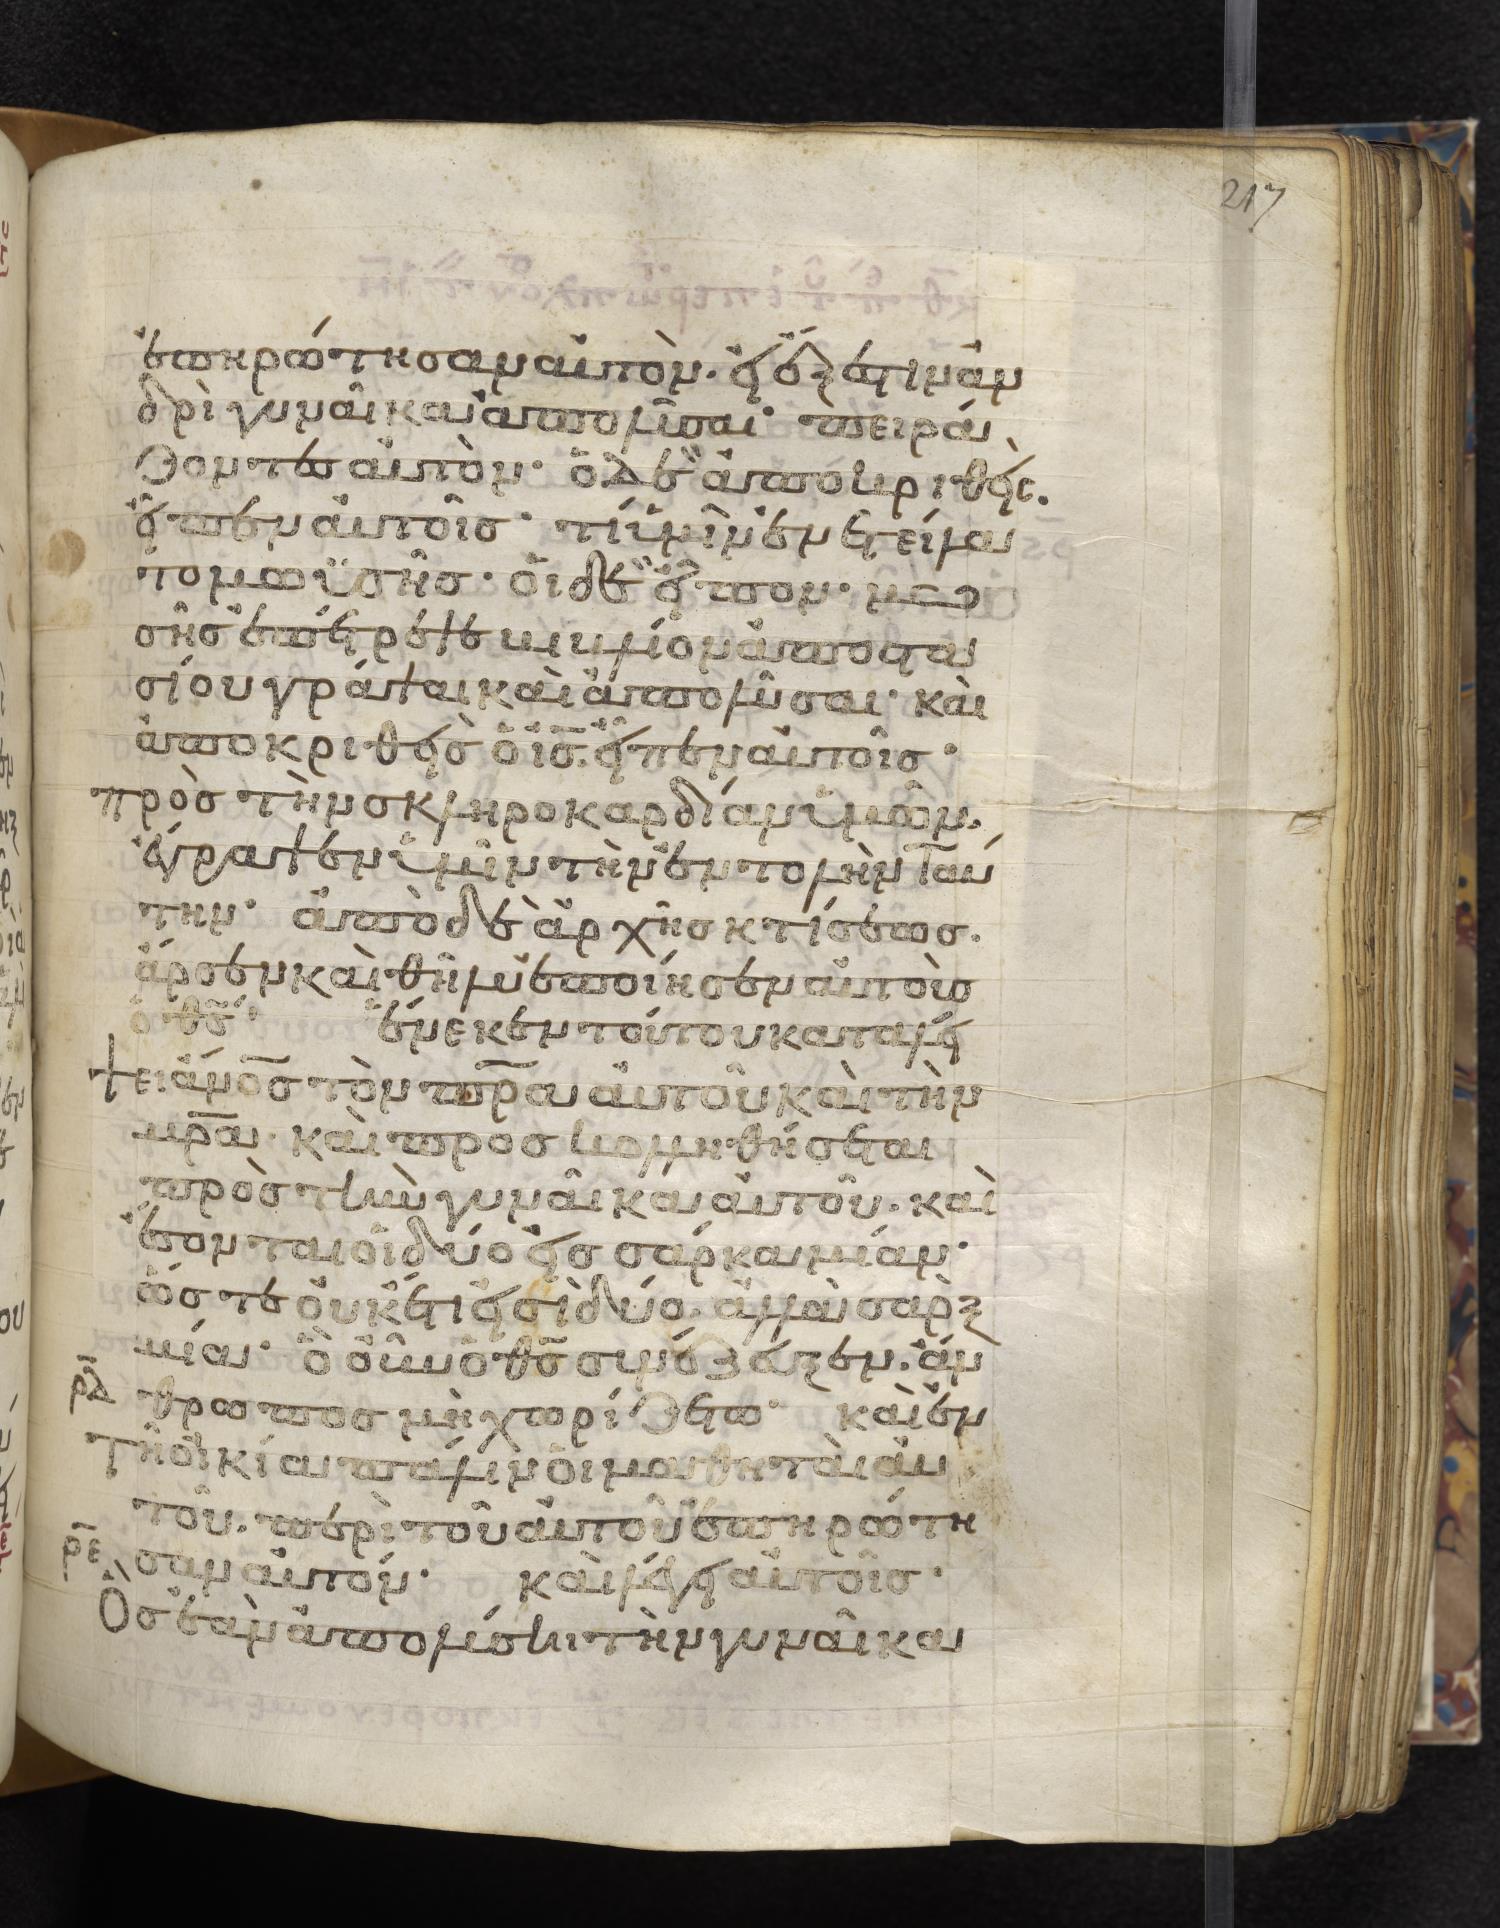 217
ἐπηρώτησαν αὐτὸν· εἰ ἔξεστιν ἀν
δρὶ γυναῖκα ἀπολῦσαι· πειρά
ζοντε αὐτὸν· ὁ δὲ ἀποκριθεὶς.
εἶπεν αὐτοῖσ· τί ὑμῖν ἐνετείλα
το μωϋσῆσ· οἱ δὲ εἶπον· μωϋ
σῆσ ἐπέτρεψε βιβλίον ἀποστα
σίου γράψαι καὶ ἀπολῦσαι· καὶ
ἀποκριθεὶσ ὁ ις̅. εἶπεν αὐτοῖσ·
πρὸσ τὴν σκληροκαρδίαν ὑμῶν.
ἔγραψεν ὑμῖν τὴν ἐντολὴν ταύ
την· ἀπὸ δὲ ἀρχῆσ κτίσεωσ.
ἄρσεν καὶ θῆλυ ἐποίησεν αὐτοὺσ
ὁ θς̅· ἕνεκεν τούτου καταλεί
ψει ἄνο̅σ τὸν πρ̅α αὐτοῦ καὶ τὴν
μρ̅α· καὶ προσκολληθήσεται
πρὸσ τὴν γυναῖκα αὐτοῦ. καὶ
ἔσονται οἱ δύο εἰσ σάρκα μίαν·
ὥστε οὐκέτι εἰσὶ δύο. ἀλλὰ σὰρξ
μία· ὃ οὖν ὁ θς̅ συνέζευξεν. ἄν
ρδ̅ θρωποσ μὴ χωριζέτω· καὶ ἐν
τῆ οἰκία πάλιν οἱ μαθηταὶ αὐ
τοῦ. περὶ τοῦ αὐτοῦ ἐπηρώτη
ρε̅ σαν αὐτόν· καὶ λέγει αὐτοῖσ·
Ὃσ ἐὰν ἀπολύση τὴν γυναῖκα